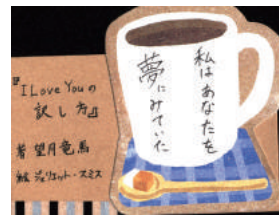 『I Love Youの
訳し方』
著 望月竜馬
絵 ジュリエット・スミス
私はあなたを
夢にみていた